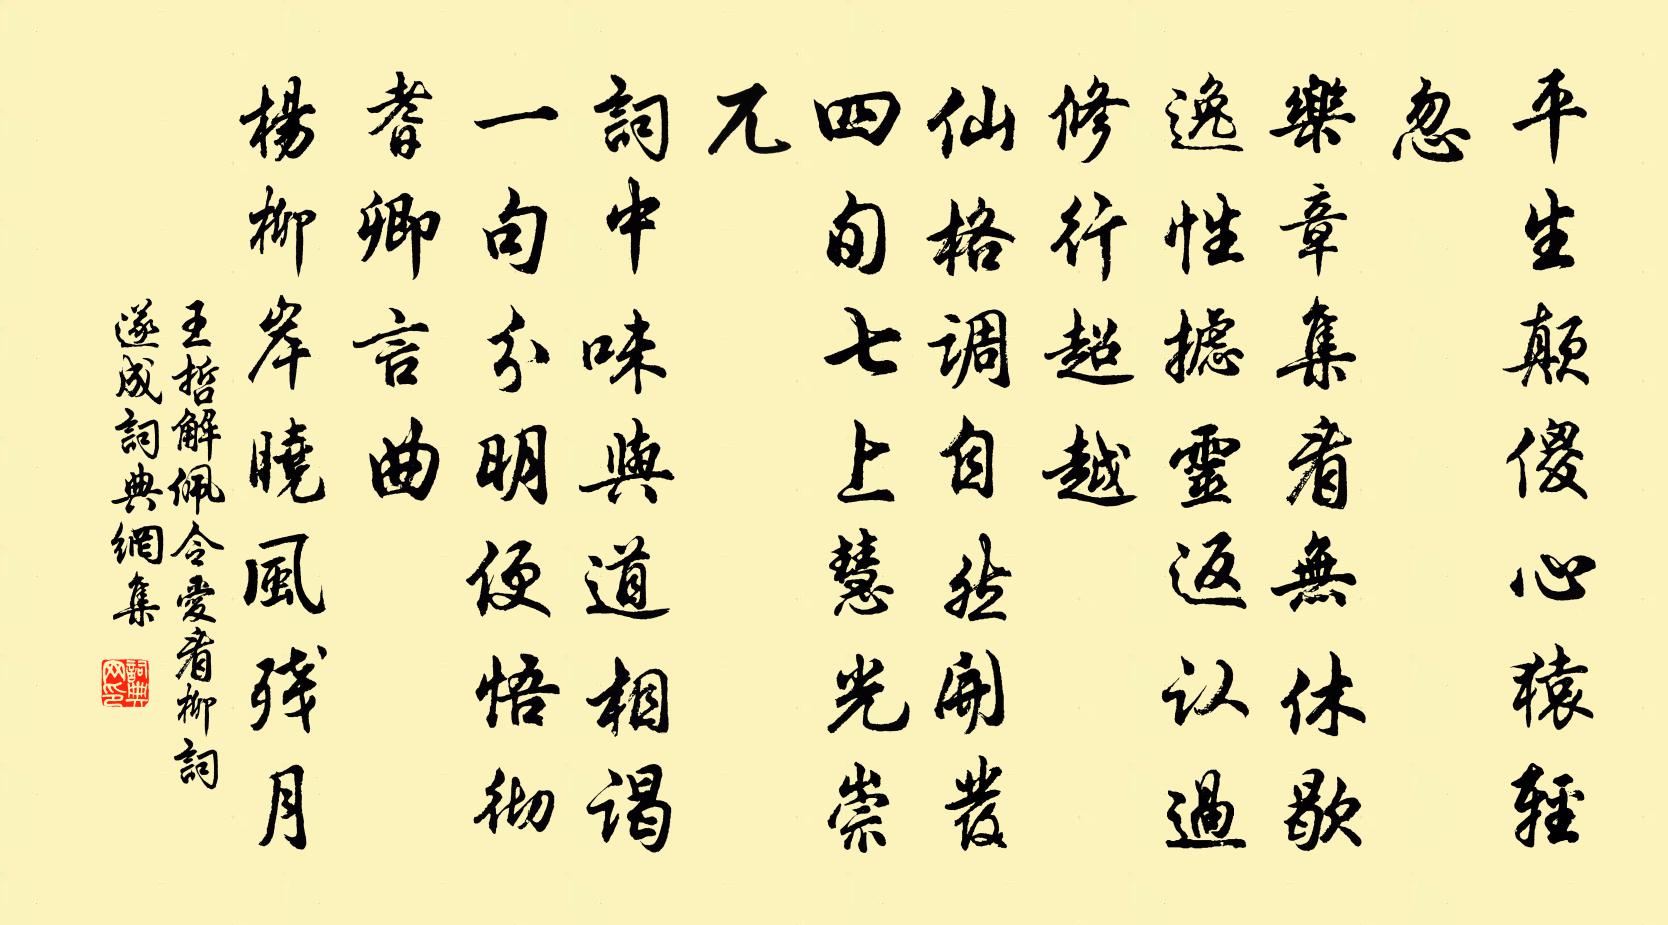 平生顛傻心猿輕
忽
樂章集看無休歇
逸性攄靈返认過
修行超越
仙格调自然開發
四旬七上慧光崇
兀
詞中味與道相谒
一句分明便悟彻
耆卿言曲
楊柳岸曉風残月
王哲解佩令愛看柳詞
遂成詞典網集
詞典网印